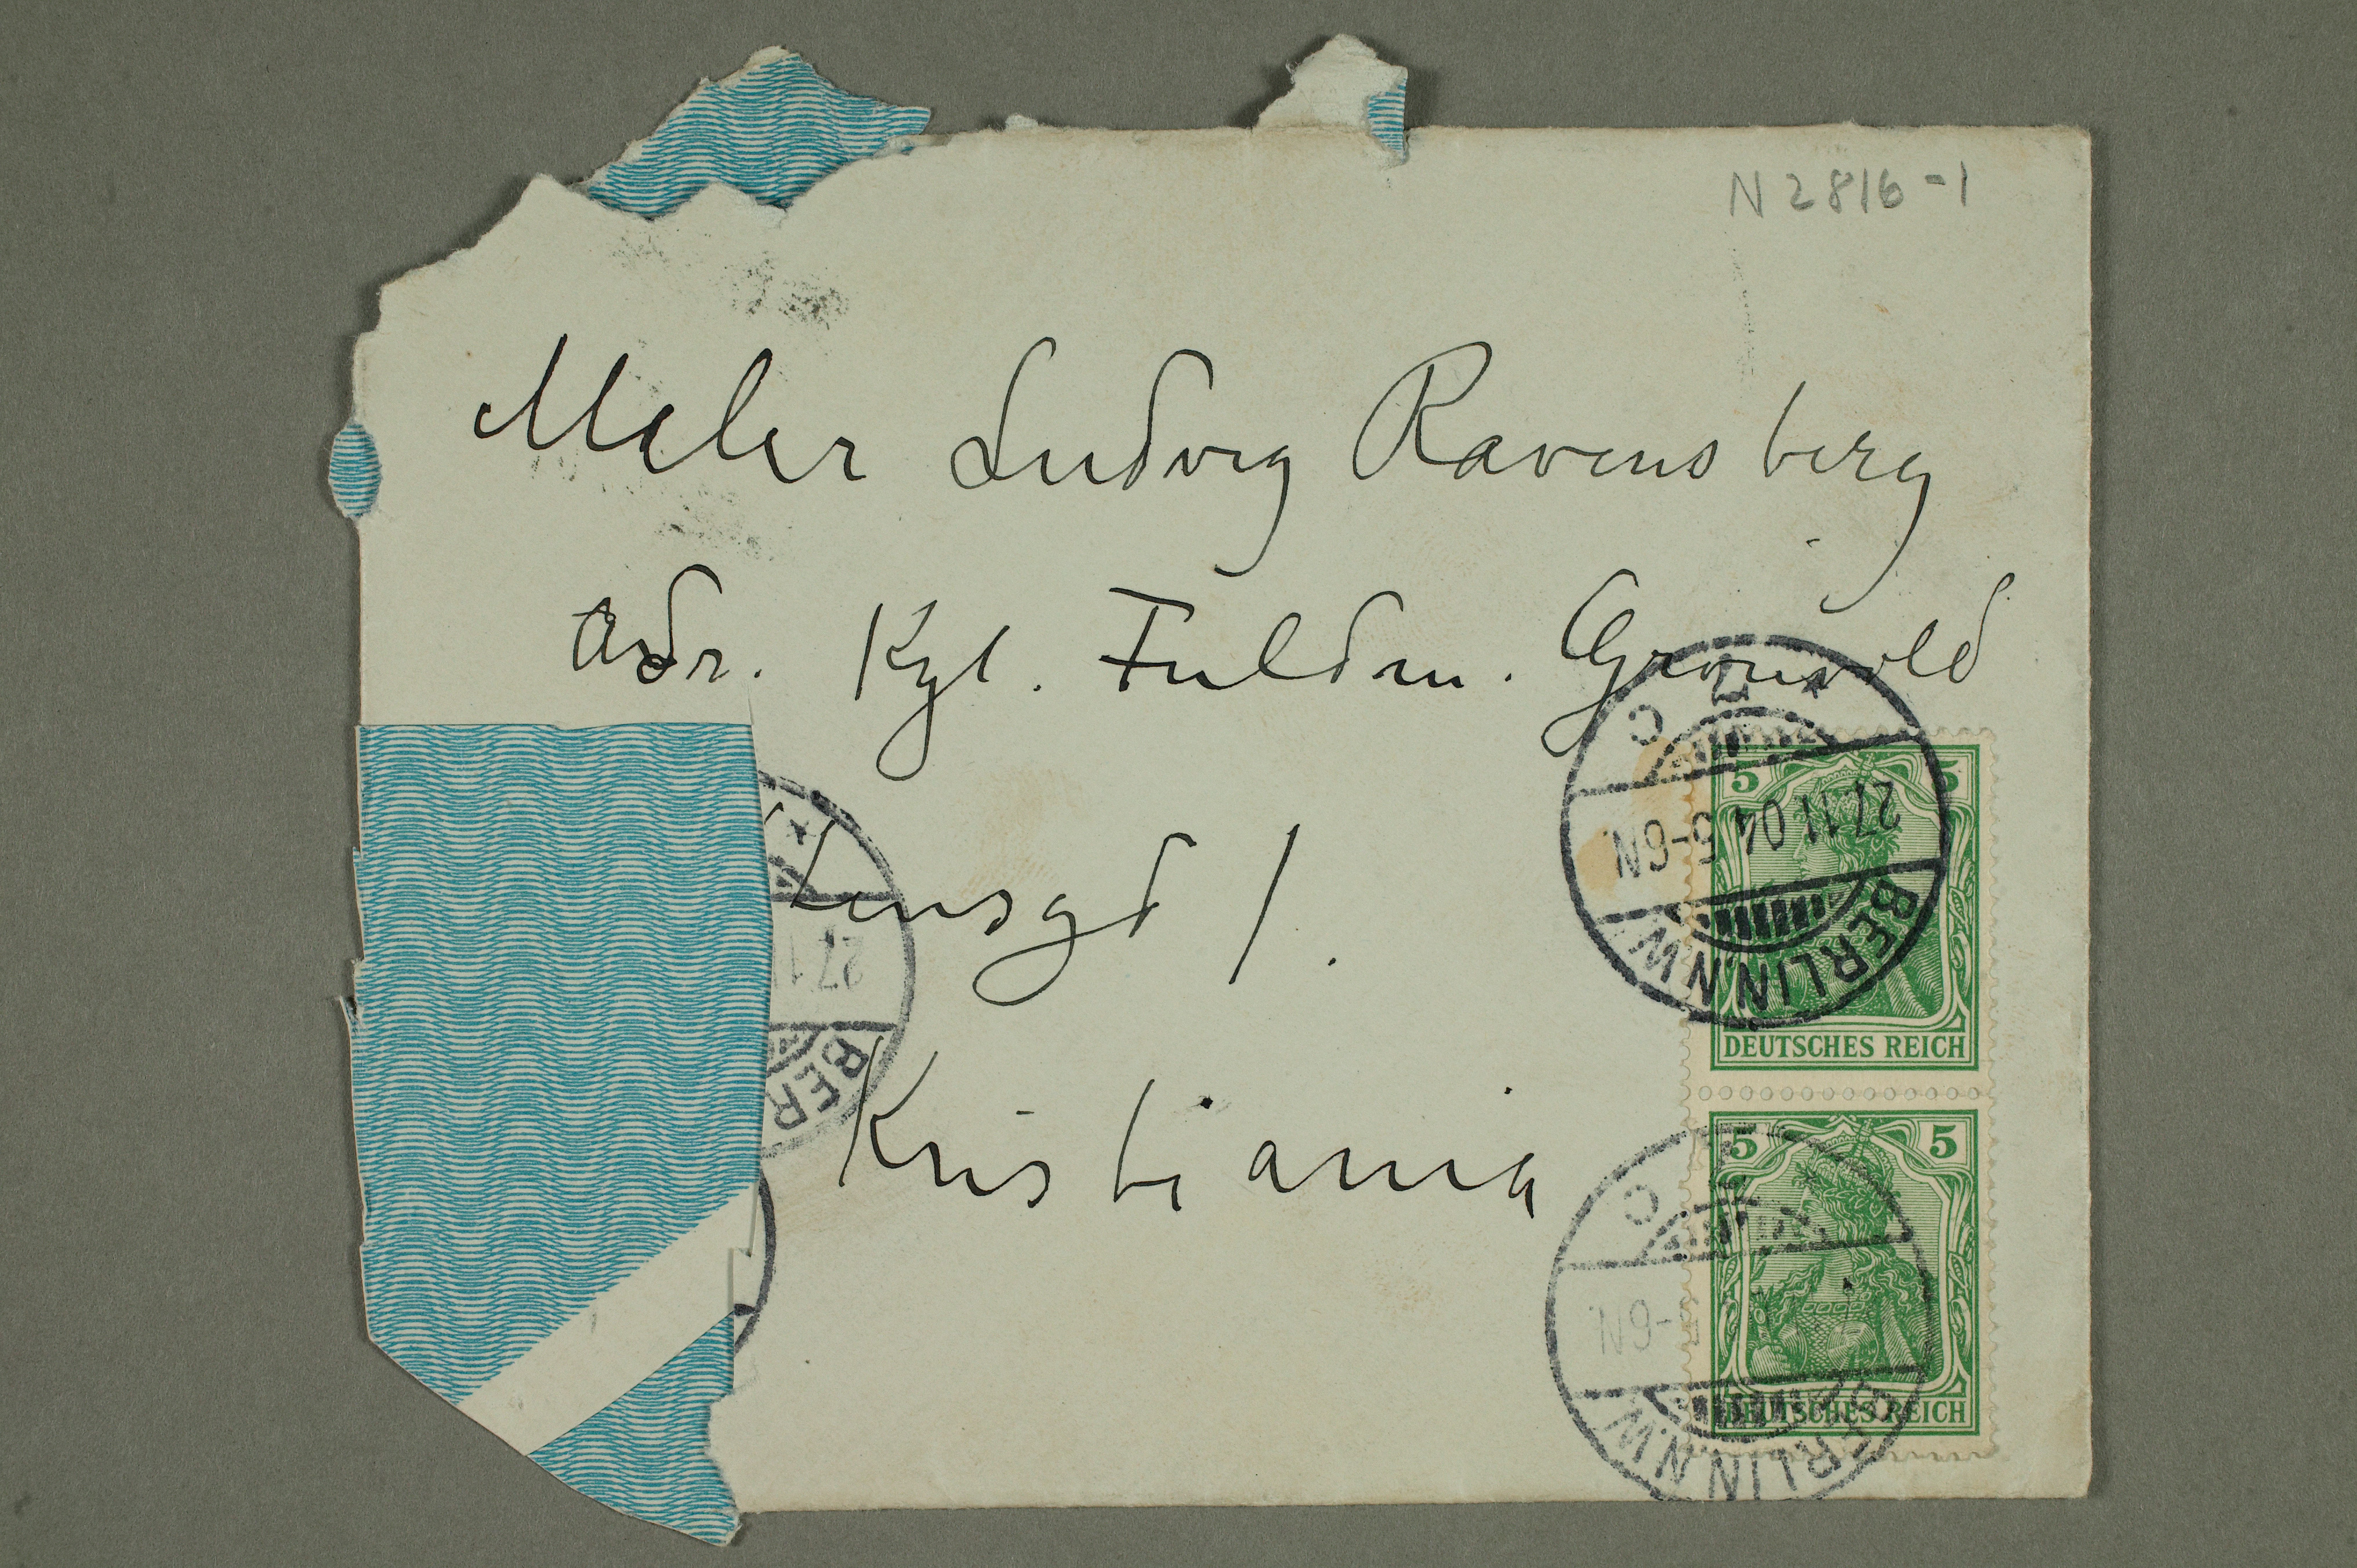 N 2816-1
Maler Ludvig Ravensberg
Adr. Kgl. Fuldm. Grønvold
tensgd 1.
Kristiania
5 5
DEUTSCHES REICH
5 5
DEUTSCHES REICH
BERLIN.N.W.
27.11.04 5-6N
C
BERLIN.N.W.
5-6N
C
27.11
BER